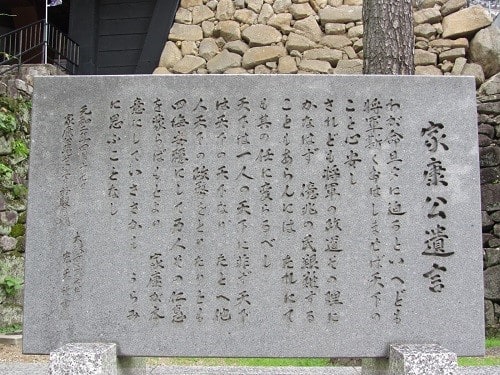 家康公遺言
わが命旦夕に迫るといへども
将軍斯くおはしませば天下の
こと心安し
されども将軍の政道その理に
かなはず 億兆の民艱難する
こともあらんには たれにて
も其の任に変らるべし
天下は一人の天下に非ず 天下
は天下の天下なり たとへ他
人天下の政務をとりたりとも
四海安穏にして万人その仁恵
を蒙らばもとより 家康が本
意にしていささかも うらみ
に思ふことなし
元和二年